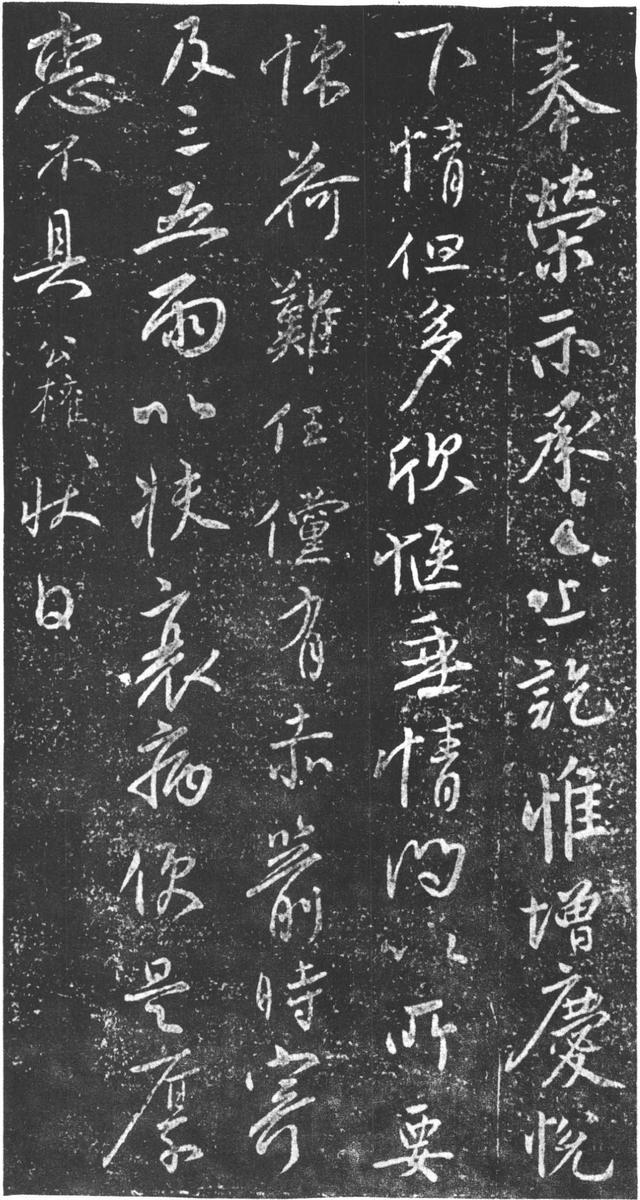 奉榮示承已上訖惟增慶悅
下情但多欣愜垂情問以所要
悚荷難任儻有赤箭時寄
及三五兩以扶衰病便是厚
惠不具公權狀白